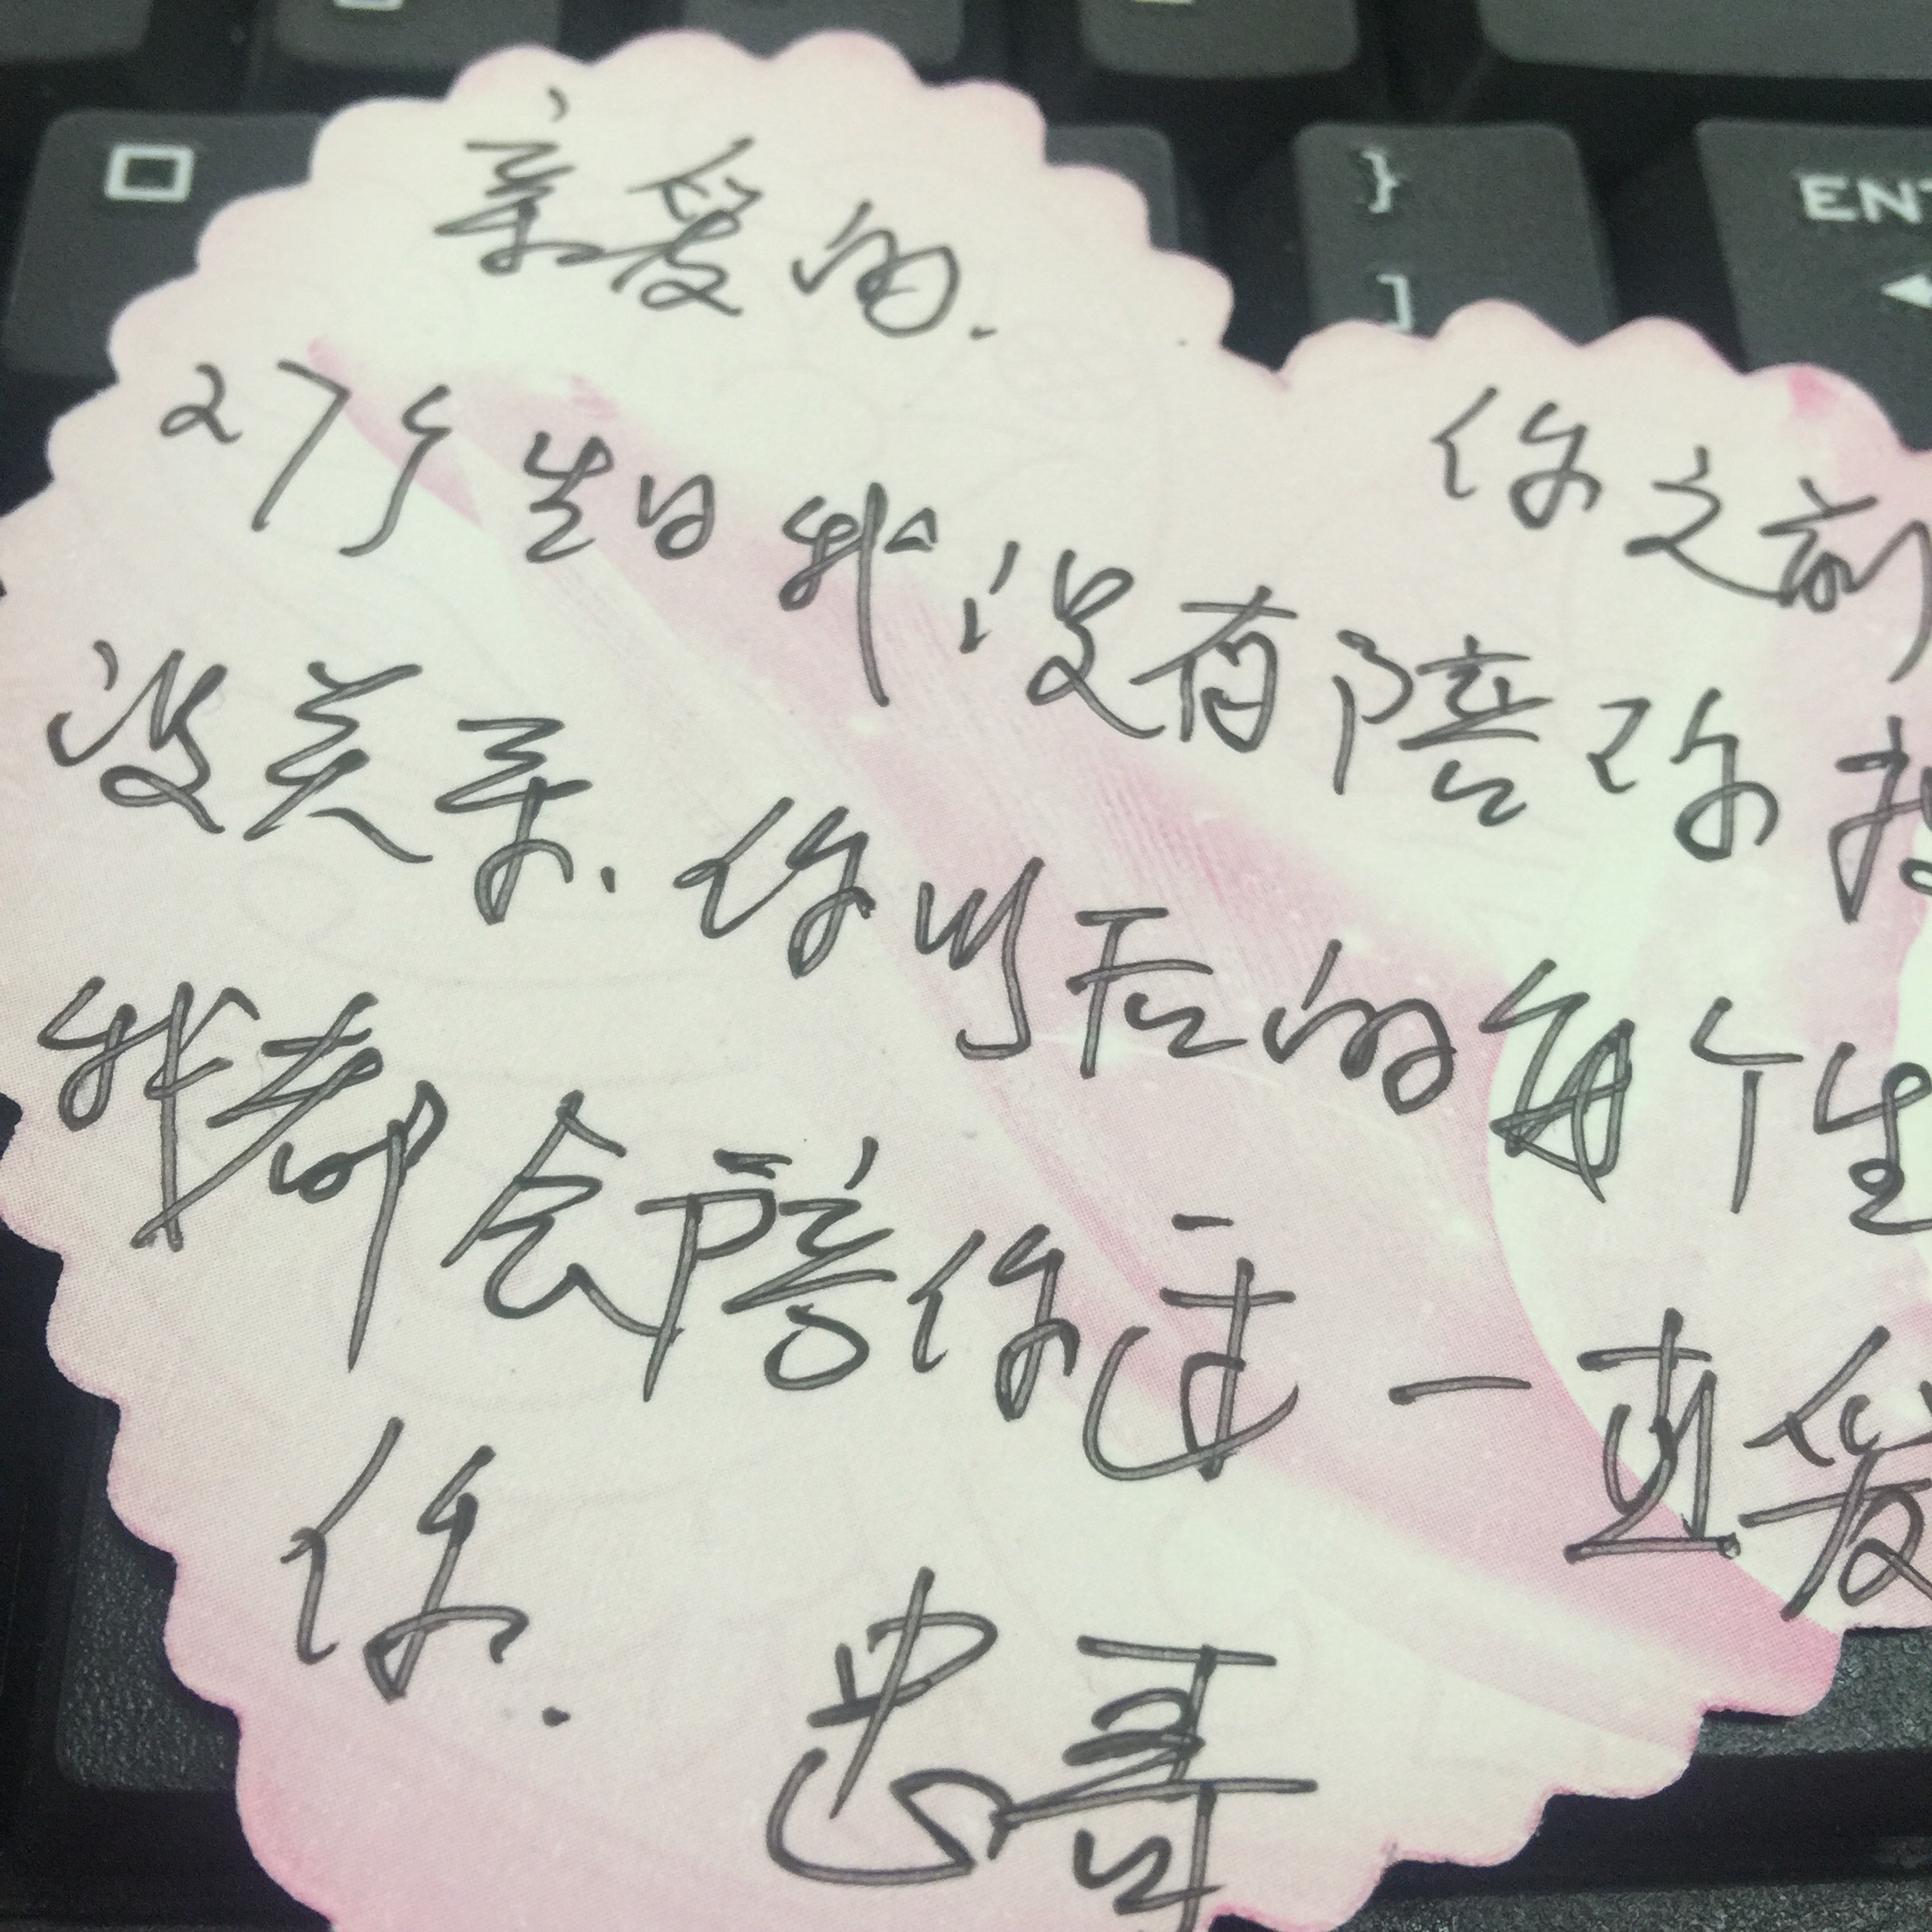 }
]
ENT
亲爱的.
你之前
27个生日我没有陪你
没关系.你以后的每个生
我都会陪你过一直爱
你.
忠哥